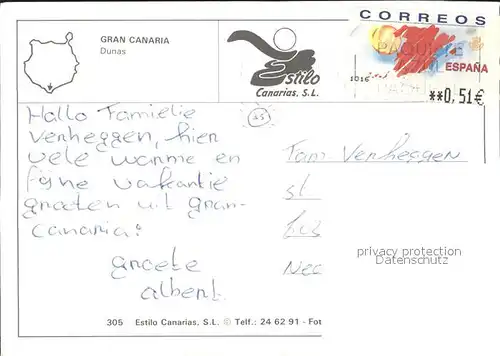 GRAN CANARIA
Dunas
Estilo
Canarias, S.L.
CORREOS
ESPAÑA
1016
**0,51€
Hallo Familie
Verheggen, hier
vele warme en
fijne vakantie
groeten uit Gran-
canaria.
groete
albert.
Fam. Verheggen
st
Nee
privacy protection
Datenschutz
305 Estilo Canarias, S.L. © Telf.: 24 62 91 - Fot